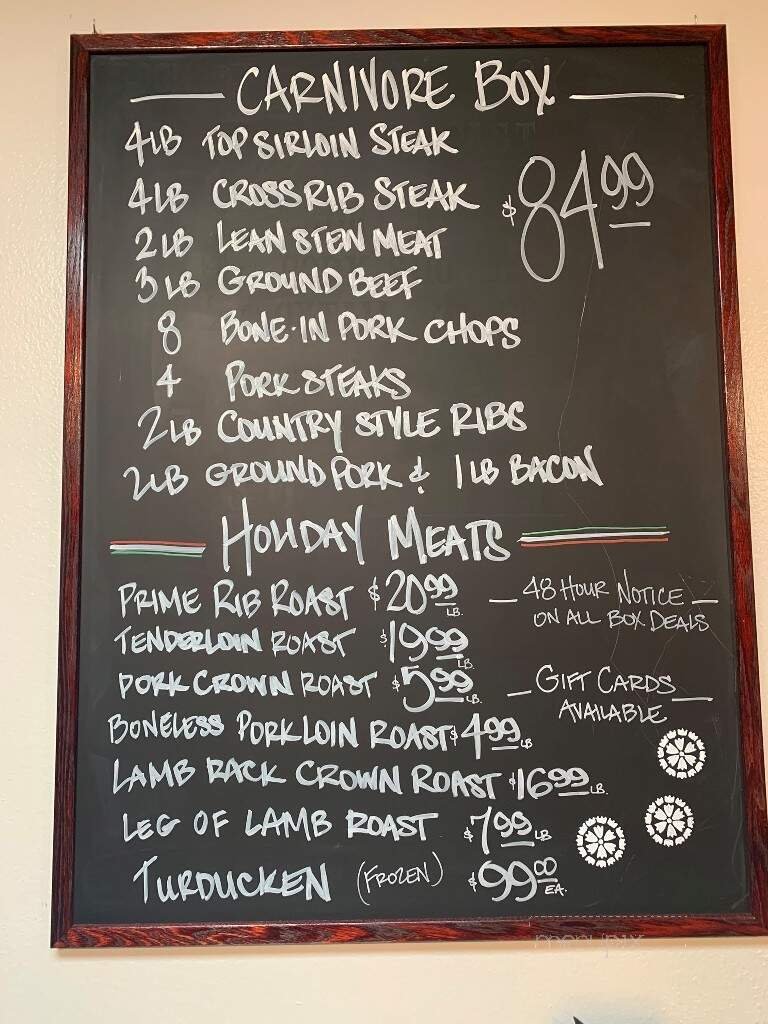 CARNIVORE BOX
4LB TOP SIRLOIN STEAK
4LB CROSS RIB STEAK
$84.99
2LB LEAN STEW MEAT
3LB GROUND BEEF
8 BONE-IN PORK CHOPS
4 PORK STEAKS
2LB COUNTRY STYLE RIBS
2LB GROUND PORK & 1LB BACON
HOLIDAY MEATS
PRIME RIB ROAST $20.99 LB.
TENDERLOIN ROAST $19.99 LB.
PORK CROWN ROAST $5.99 LB.
BONELESS PORK LOIN ROAST $4.99 LB
LAMB RACK CROWN ROAST $16.99 LB.
LEG OF LAMB ROAST $7.99 LB
TURDUCKEN (FROZEN) $99.00 EA.
48 HOUR NOTICE
ON ALL BOX DEALS
GIFT CARDS
AVAILABLE